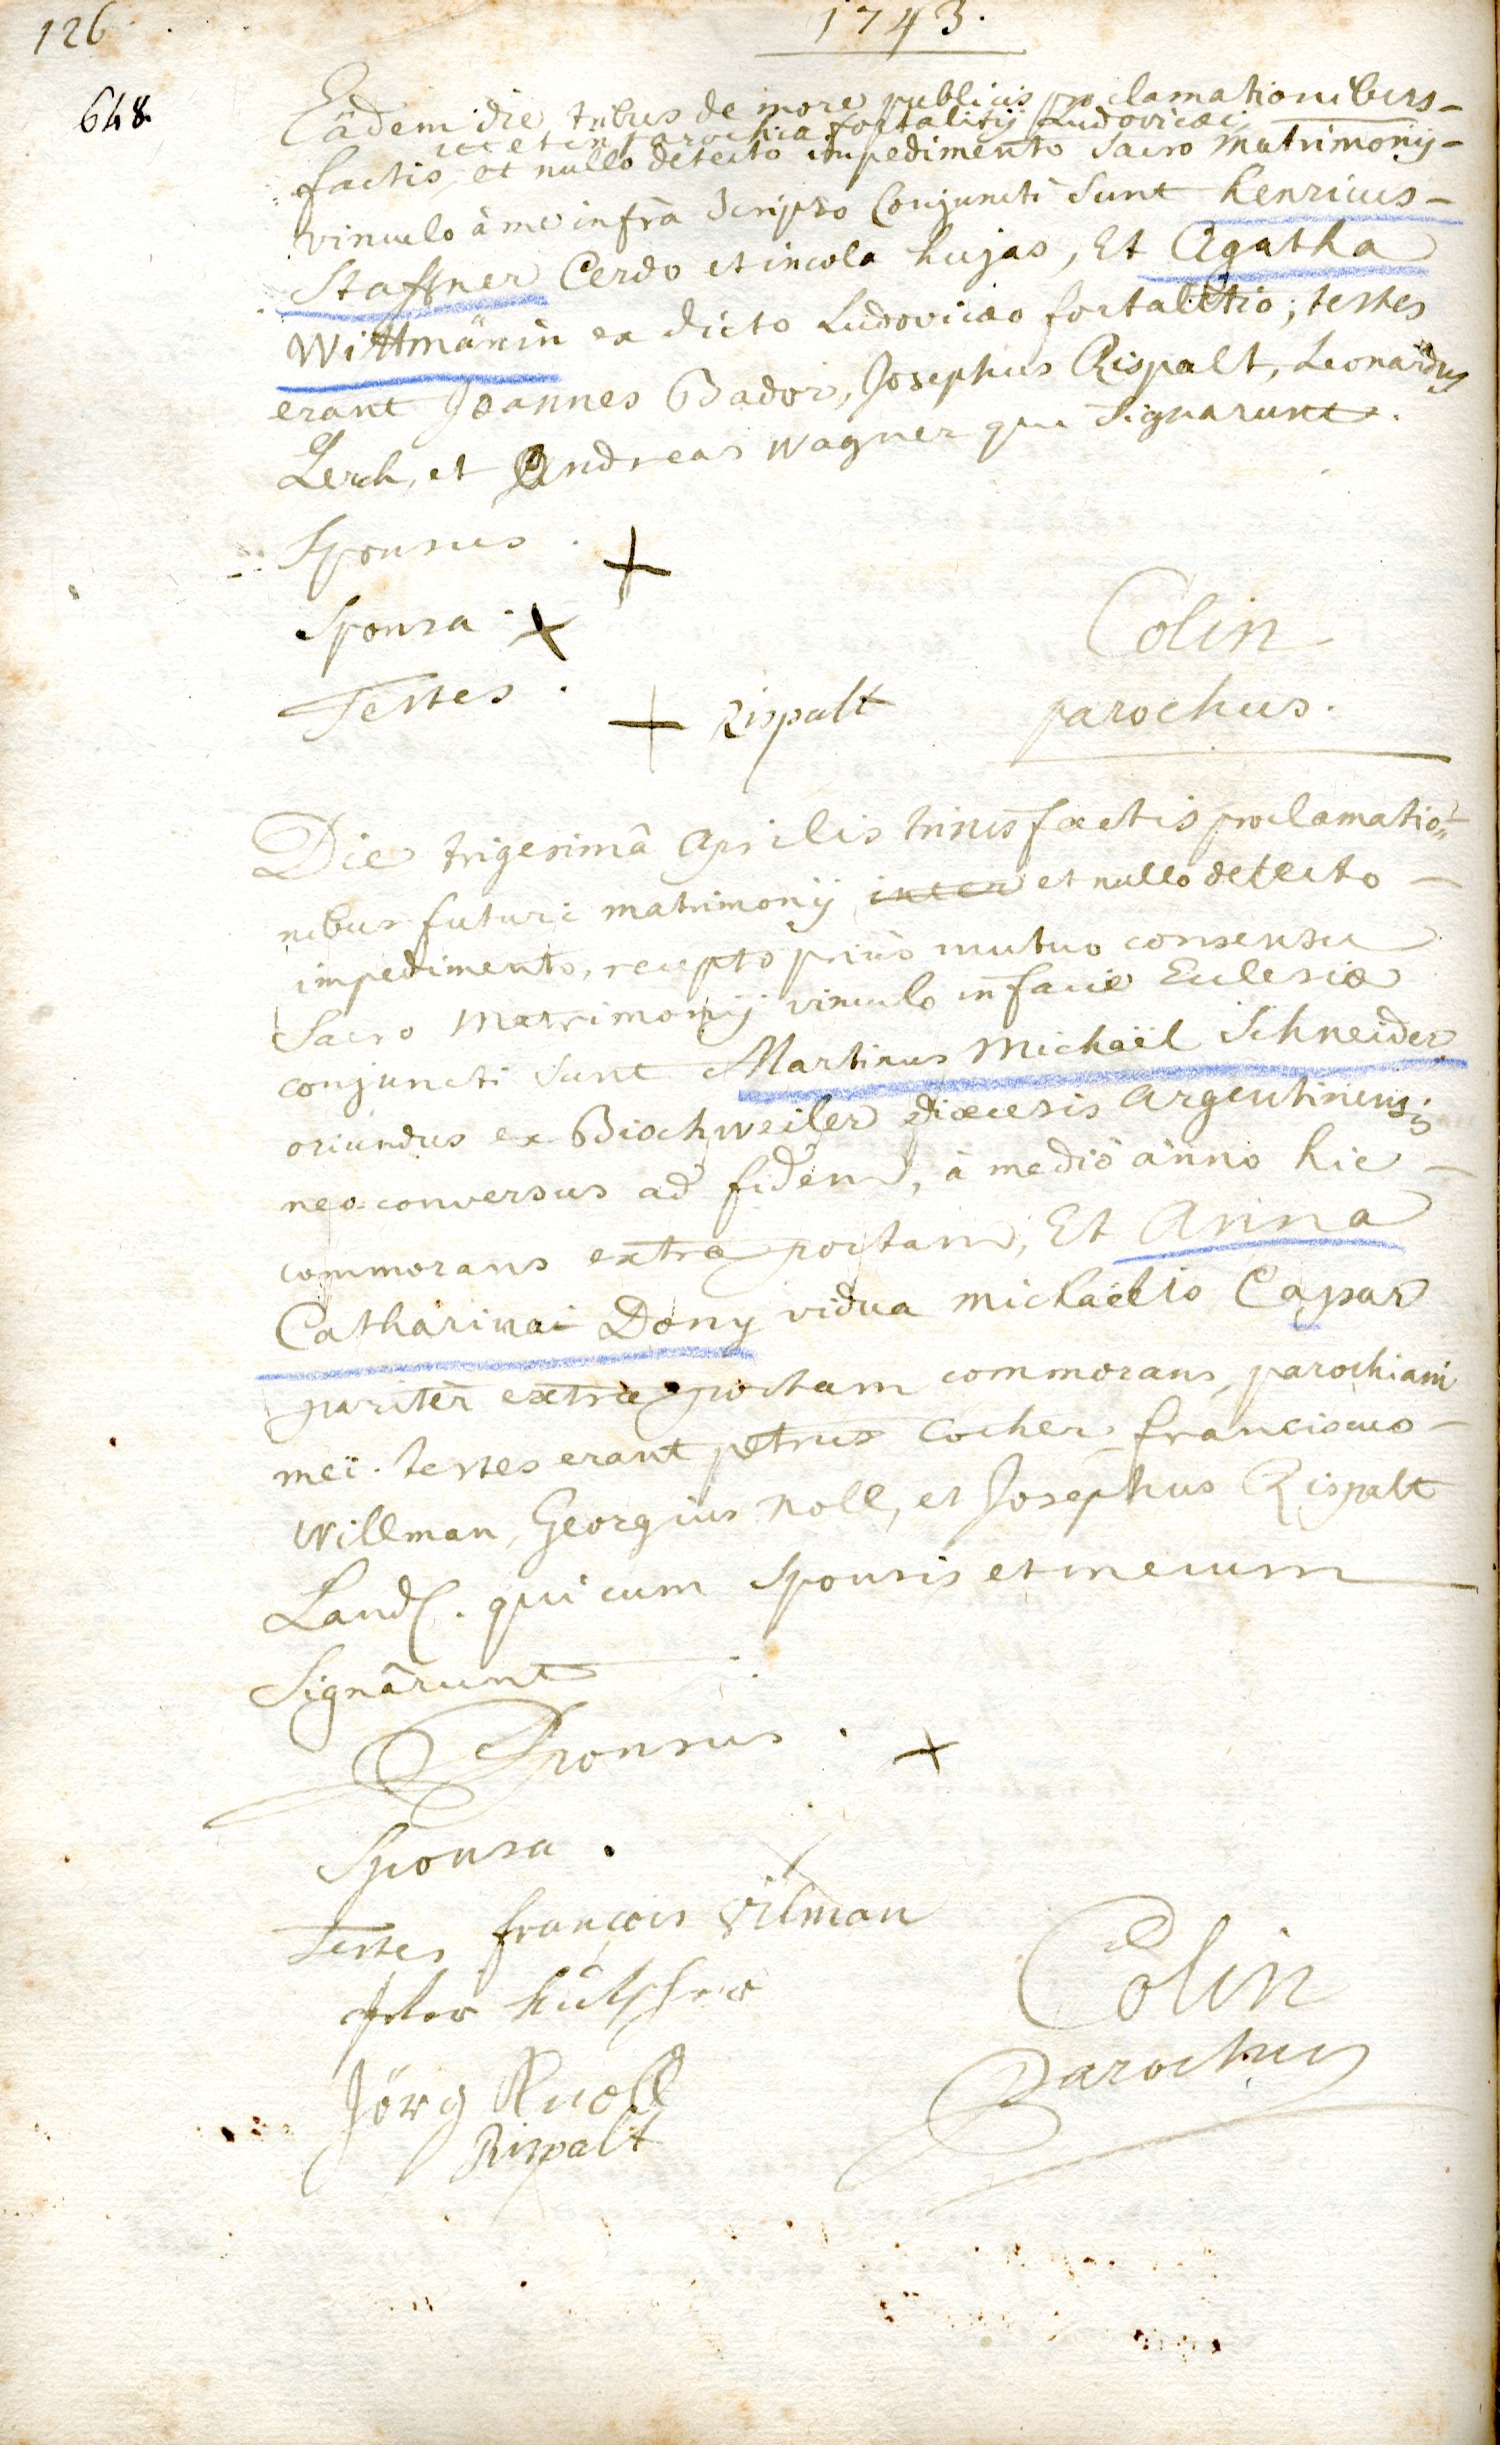 126
1743.
648
Eâdem die, tribus de more publicis proclamationibus
hic et in parochia fortalitij Ludoviciani
factis, et nullo detecto impedimento Sacro matrimonij
vinculo à me infrà Scripto Conjuncti Sunt henricus
Staffner Cerdo et incola hujas, Et Agatha
Wittmänin ex dicto Ludoviciao fortalitio; testes
erant Joannes Bador, Josephus Rispalt, Leonardus
Lerch, et Andreas Wagner qui Signarunt.
Sponsus . +
Sponsa . +
Testes . + Rispalt
Colin
parochus.
Die trigesimâ Aprilis trinis factis proclamatio
nibus futuri matrimonij inter et nullo detecto
impedimento, recepto priùs mutuo consensu
Sacro Matrimonij vinculo in facie Eclesiæ
conjuncti Sunt Martinus Michaël Schneider
oriundus ex Bischweiler diœcesis Argentinensis
neo-conversus ad fidem, à medio anno hic
commorans extra portam, Et Anna
Catharina Dony vidua michaëlis Capar
pariter extra portam commorans, parochiani
mei. testes erant petrus Cocher, franciscus
Willman, Georgius Noll, et Josephus Rispalt
Land. qui cum Sponsis et mecum
Signârunt
Sponsus . +
Sponsa . x
Testes françois Vilman
Jörg Knoll
Rispalt
Colin
Parochus